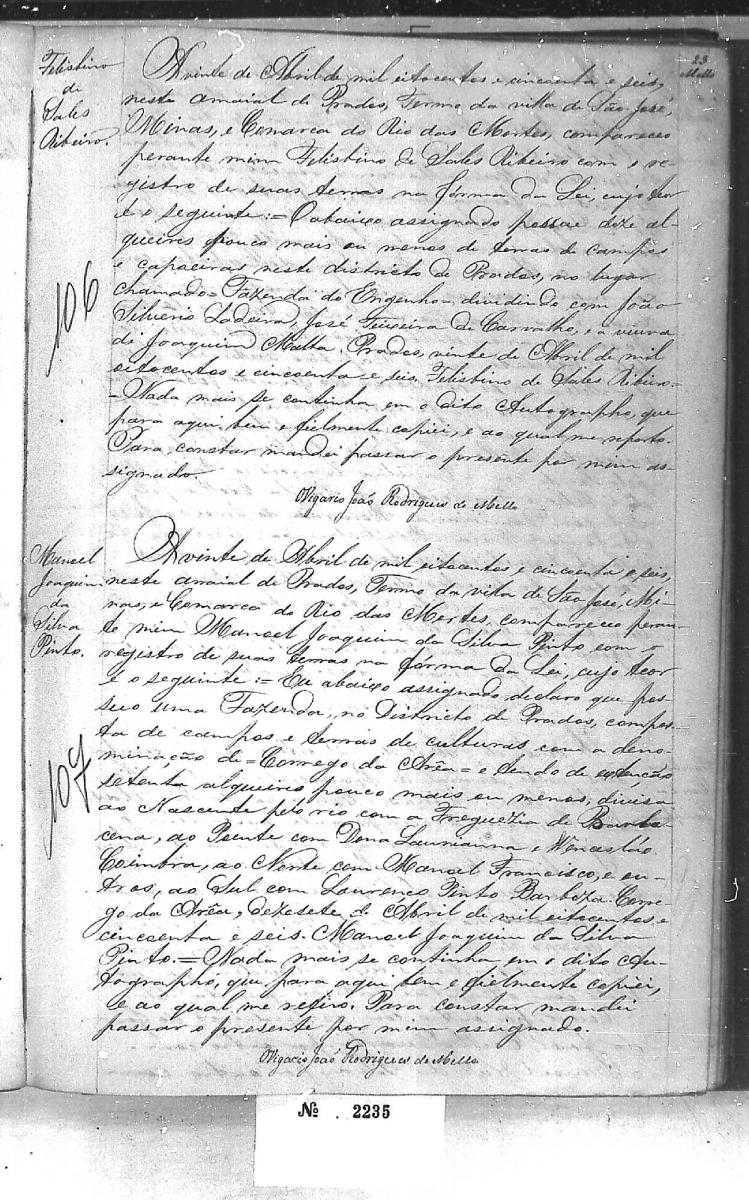 23
Mello
Felisbino
de
Sales
Ribeiro.
A vinte de Abril de mil eitocentos e cincoenta e seis,
neste arraial de Prados, Termo da villa de São José,
Minas, e Comarca do Rio das Mortes, compareceo
perante mim Felisbino de Sales Ribeiro com o re-
gistro de suas terras na fórma da Lei, cujo teor
é o seguinte:= O abaixo assignado possue doze al-
queires pouco mais ou menos de terras de campos
e capoeiras neste districto de Prados, no lugar
chamado= Fazenda do Engenho= dividindo com João
Silverio Ladeira, José Teixeira de Carvalho, e a viuva
di Joaquim Malta. Prados, vinte de Abril de mil
eitocentos e cincoenta e seis. Felisbino de Sales Ribeiro=
=Nada mais se continha em o dito Autographo, que
para aqui bem e fielmente copiei, e ao qual me reporto.
Para constar mandei passar o presente por mim as-
signado.
106
Vigario João Rodrigues de Mello
Manoel
Joaquim
da
Silva
Pinto.
A vinte de Abril de mil eitocentos e cincoenta e seis,
neste arraial de Prados, Termo da villa de São José, Mi-
nas, e Comarca do Rio das Mortes, compareceo peran-
te mim Manoel Joaquim da Silva Pinto com o
registro de suas terras na fórma da Lei, cujo teor
é o seguinte:= Eu abaixo assignado declaro que pos-
suo uma Fazenda, no Districto de Prados, compos-
ta de campos e terras de culturas com a deno-
minação de= Corrego da Arêa= e tendo de extenção
setenta alqueires pouco mais ou menos, divisa
ao Nascente pelo rio com a Freguezia de Barba-
cena, ao Poente com Dona Laurianna e Wencesláo
Coimbra, ao Norte com Manoel Francisco, e ou-
tros, ao Sul com Lourenço Pinto Barboza. Corre-
go da Arêa, dezesete de Abril de mil eitocentos e
cincoenta e seis. Manoel Joaquim da Silva
Pinto.= Nada mais se continha em o dito Au-
tographo, que para aqui bem e fielmente copiei,
e ao qual me refiro. Para constar mandei
passar o presente por mim assignado.
107
Vigario João Rodrigues de Mello
Nº 2235